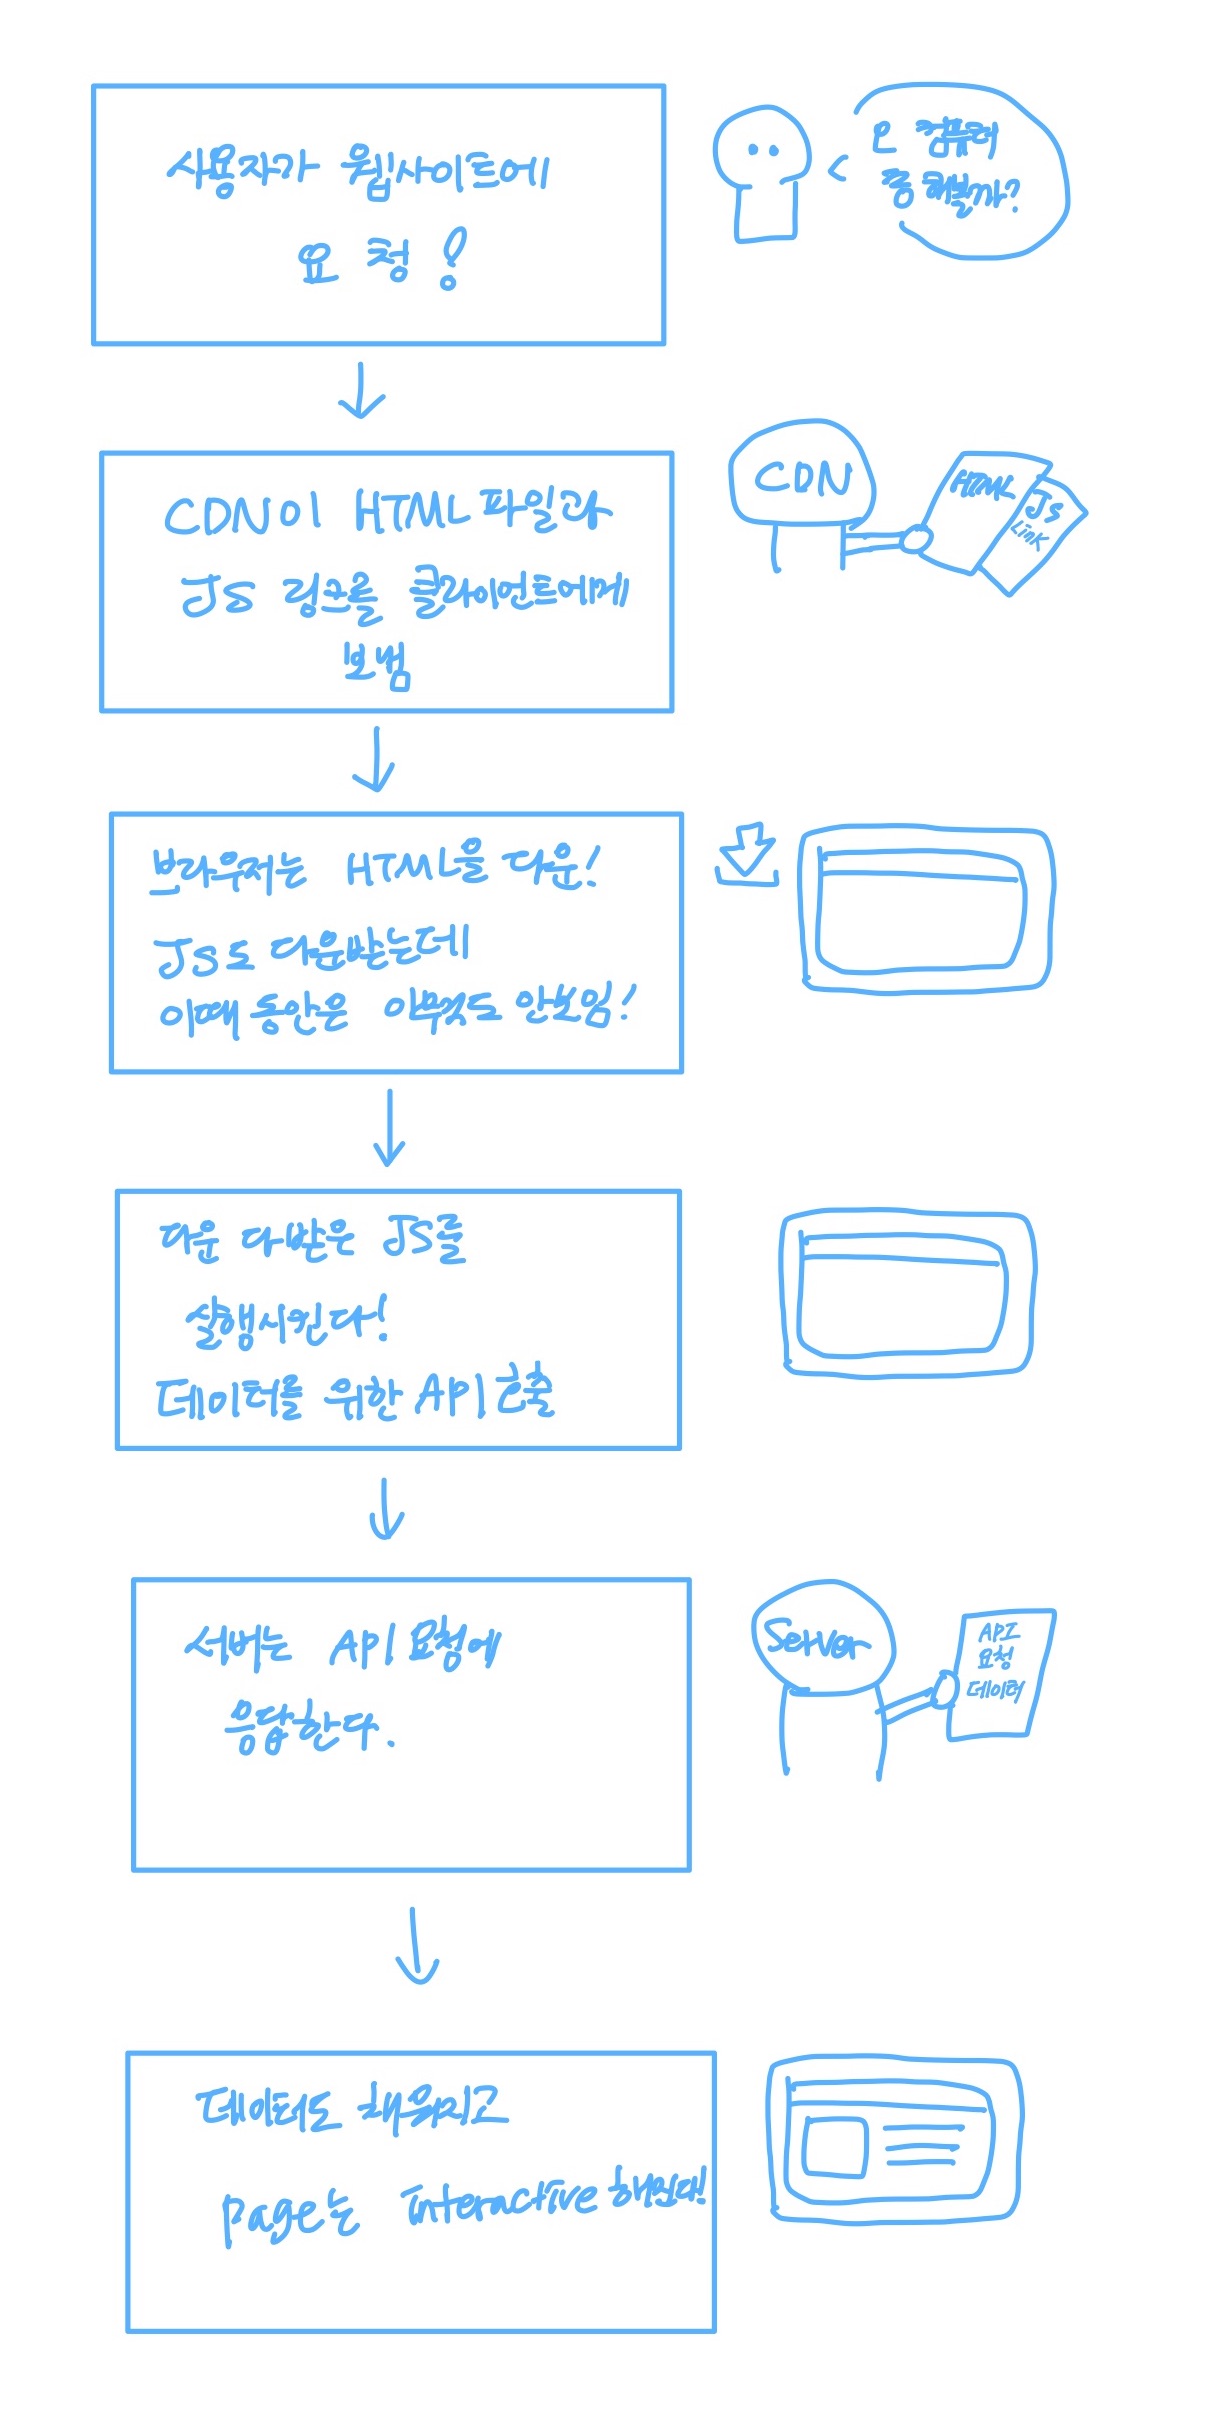 사용자가 웹사이트에
요청!
오 컴퓨터
좀 해볼까?
CDN이 HTML파일과
JS 링크를 클라이언트에게
보냄
CDN
HTML
JS
Link
브라우저는 HTML을 다운!
JS도 다운받는데
이때 동안은 아무것도 안보임!
다운 다받은 JS를
실행시킨다!
데이터를 위한 API 호출
서버는 API 요청에
응답한다.
Server
API
요청
데이터
데이터도 채워지고
page는 interactive 해진다!